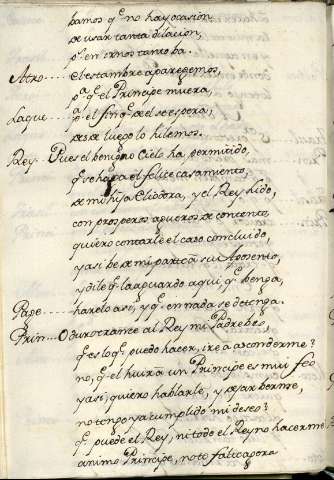 bamos q̃ no hay ocasion
de usar tanta dilacion,
q̃ en irnos tanto ba.
Atro.... el estambre aparejemos,
pa. q̃ el Principe muera,
Laque.... el fin q̃ del se espera,
desde luego lo hilemos.
Rey.. Pues el benigno Cielo ha permitido,
q̃ se haga el felice casamiento,
de mi hija Clidora, y el Rey Lido,
con prosperos agueros de contento,
quiero contarle el caso concluido,
y asi be de mi parte a su Aposento,
y dile q̃ la aguardo aqui, q̃ benga,
Page.... harelo asi, y q̃ en nada se detenga.
Prin... O duro trance al Rey mi Padre beo
q̃ es lo q̃ puedo hacer, ire a asconderme?
no, q̃ el huir a un Principe es mui feo
y asi, quiero hablarle, y dejar berme,
no tengo ya cumplido mi deseo?
q̃ puede el Rey, ni todo el Reyno hacerme
animo Principe, no te falte agora